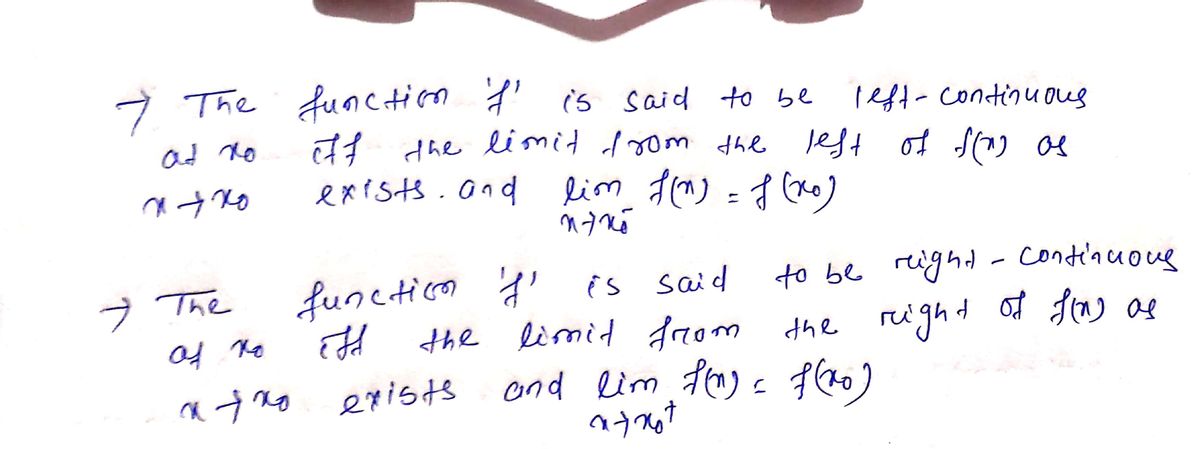 → The function 'f' is said to be left-continuous
at x₀ iff the limit from the left of f(x) as
x→x₀ exists. and lim f(x) = f(x₀)
x→x₀⁻
→ The function 'f' is said to be right-continuous
at x₀ iff the limit from the right of f(x) as
x→x₀ exists and lim f(x) = f(x₀)
x→x₀⁺